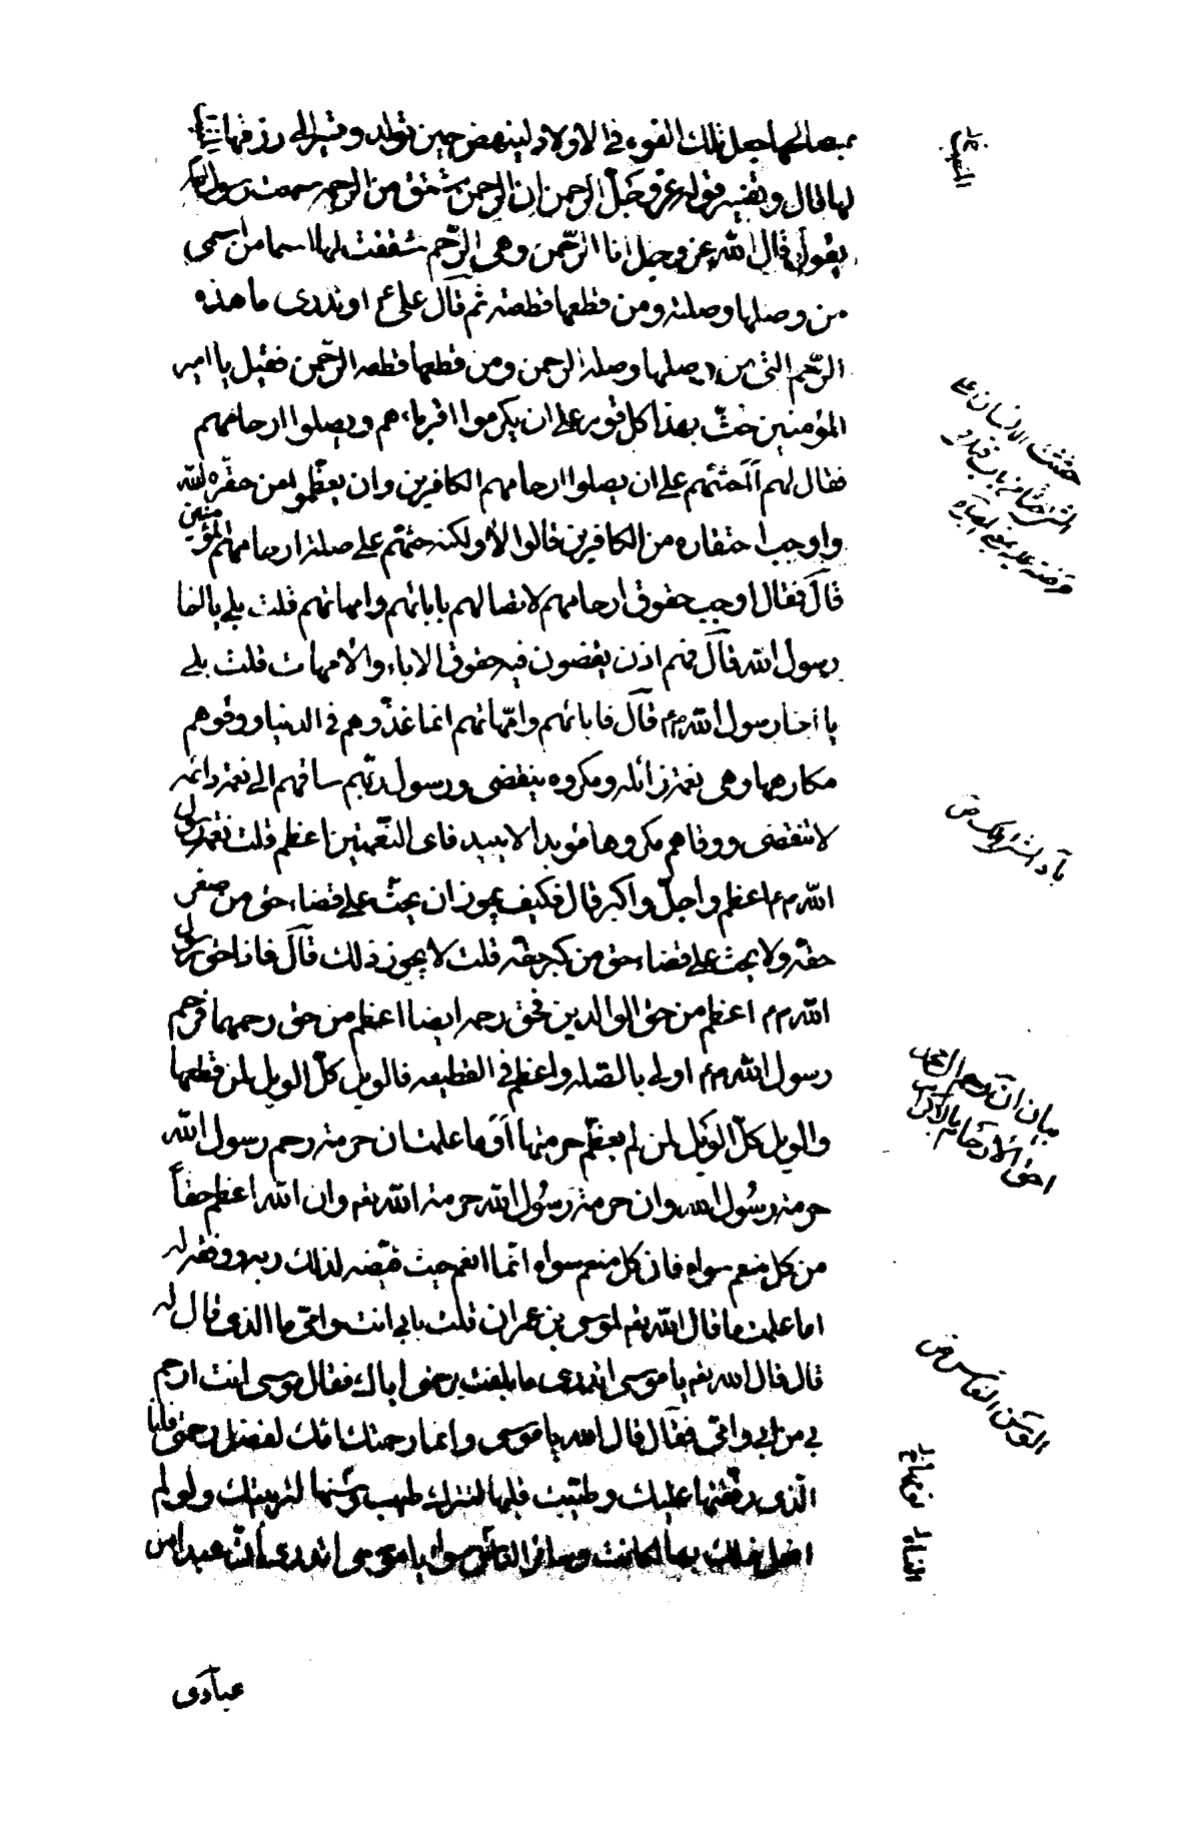 بمصالحها جعل تلك القوه في الاولاد لينهض حين تولد ويسير الى رزقها
لها قال وتفسير قوله عز وجلّ الرحمن ان الرحمن مشتق من الرحم سمعت رسول الله
يقول قال الله عز وجل انا الرّحمن وهى الرّحم شققت لها اسما من اسمى
من وصلها وصلته ومن قطعها قطعته ثم قال على ع اوتدرى ما هذه
الرّحم التى من وصلها وصله الرحمن ومن قطعها قطعه الرّحمن فقيل يا امير
المؤمنين حثّ بهذا كل قوم على ان يكرموا اقرباءهم ويصلوا ارحامهم
فقال لهم ايحثهم على ان يصلوا ارحامهم الكافرين وان يعظّموا من حقّره الله
واوجب احتقاره من الكافرين قالوا لا ولكنه حثهم على صلة ارحامهم المؤمنين
قال فقال اوجب حقوق ارحامهم لاتصالهم بابائهم وامهاتهم قلت بلى يا اخا
رسول الله قال فهم اذن يقضون فيهم حقوق الاباء والامهات قلت بلى
يا اخا رسول الله قال فاباؤهم وامّهاتهم انما غذّوهم في الدنيا ووقوهم
مكارهها وهى نعمة زائله ومكروه ينقضى ورسول ربّهم ساقهم الى نعمة دائمه
لا تنقضى ووقاهم مكروها مؤبدا لا يبيد فاى النّعمتين اعظم قلت نعمة رسول
الله اعظم واجلّ واكبر قال فكيف يجوز ان يحثّ على قضاء حق من صغر
حقه ولا يحث على قضاء حق من كبر حقه قلت لا يجوز ذلك قال فاذا حق رسول
الله اعظم من حق الوالدين فحق رحمه ايضا اعظم من حق رحمهما فرحم
رسول الله اولى بالصّله واعظم في القطيعه فالويل كلّ الويل لمن قطعها
والويل كلّ الويل لمن لم يعظّم حرمتها اوما علمت ان حرمة رحم رسول الله
حرمة رسول الله وان حرمة رسُول الله حرمة الله تعم وان الله اعظم حقاً
من كل منعم سواه فان كل منعم سواه انّما انعم حيث قيّضه لذلك ربه ووفقه له
اما علمت ما قال الله تعم لموسى بن عمران قلت بابى انت وامى ما الذى قال له
قال قال الله تعم يا موسى اتدرى ما بلغت برحمتى اياك فقال موسى انت ارحم
بى من ابى وامّى فقال قال الله يا موسى وانما رحمتك امّك لفضل رحمتى فانا
الّذى رقّقتها عليك وطيّبت قلبها لتترك طيب وسنها لتربيتك ولو لم
افعل ذلك بها لكانت وسائر النّاس سواء يا موسى اتدرى ان عبدا من
عبادى
حثثت الانسان على
بيان انّ رحم ال محمد
احق الارحام بالاكرام